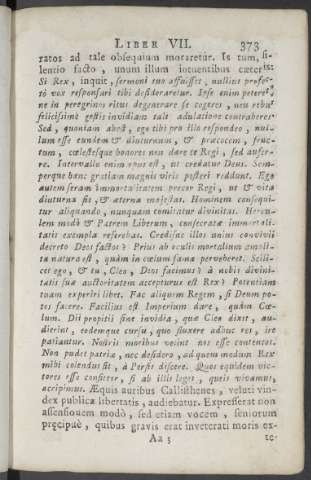 LIBER VII. 373
ratos ad tale obsequium moraretur. Is tum, si-
lentio facto, unum illum intuentibus cæteris:
Si Rex, inquit, sermoni tuo affuisset, nullius profec-
tò vox responsuri tibi desideraretur. Ipse enim peteret,
ne in peregrinos ritus degenerare se cogeres, neu rebus
felicissimè gestis invidiam tali adulatione contraheres.
Sed, quoniam abest, ego tibi pro illo respondeo, nul-
lum esse eundem & diuturnum, & præcocem, fruc-
tum, cœlestesque honores non dare te Regi, sed aufer-
re. Intervallo enim opus est, ut credatur Deus. Sem-
perque hanc gratiam magnis viris posteri reddunt. Ego
autem seram immortalitatem precor Regi, ut & vita
diuturna sit, & æterna majestas. Hominem consequi-
tur aliquando, nunquam comitatur divinitas. Hercu-
lem modò & Patrem Liberum, consecratæ immorta-
litatis exempla referebas. Credisne illos unius convivii
decreto Deos factos? Prius ab oculis mortalium amoli-
ta natura est, quàm in cœlum fama perveheret. Scili-
cet ego, & tu, Cleo, Deos facimus? à nobis divini-
tatis suæ auctoritatem accepturus est Rex? Potentiam
tuam experiri libet. Fac aliquem Regem, si Deum po-
tes facere. Facilius est Imperium dare, quàm Cœ-
lum. Dii propitii sine invidia, quæ Cleo dixit, au-
dierint, eodemque cursu, quo fluxere adhuc res, ire
patiantur. Nostris moribus velint nos esse contentos.
Non pudet patriæ, nec desidero, ad quem modum Rex
mihi colendus sit, à Persis discere. Quos equidem vic-
tores esse confiteor, si ab illis leges, queis vivamus,
accipimus. Æquis auribus Callisthenes, veluti vin-
dex publicæ libertatis, audiebatur. Expresserat non
assensionem modò, sed etiam vocem, seniorum
præcipuè, quibus gravis erat inveterati moris ex-
Aa 3 te-